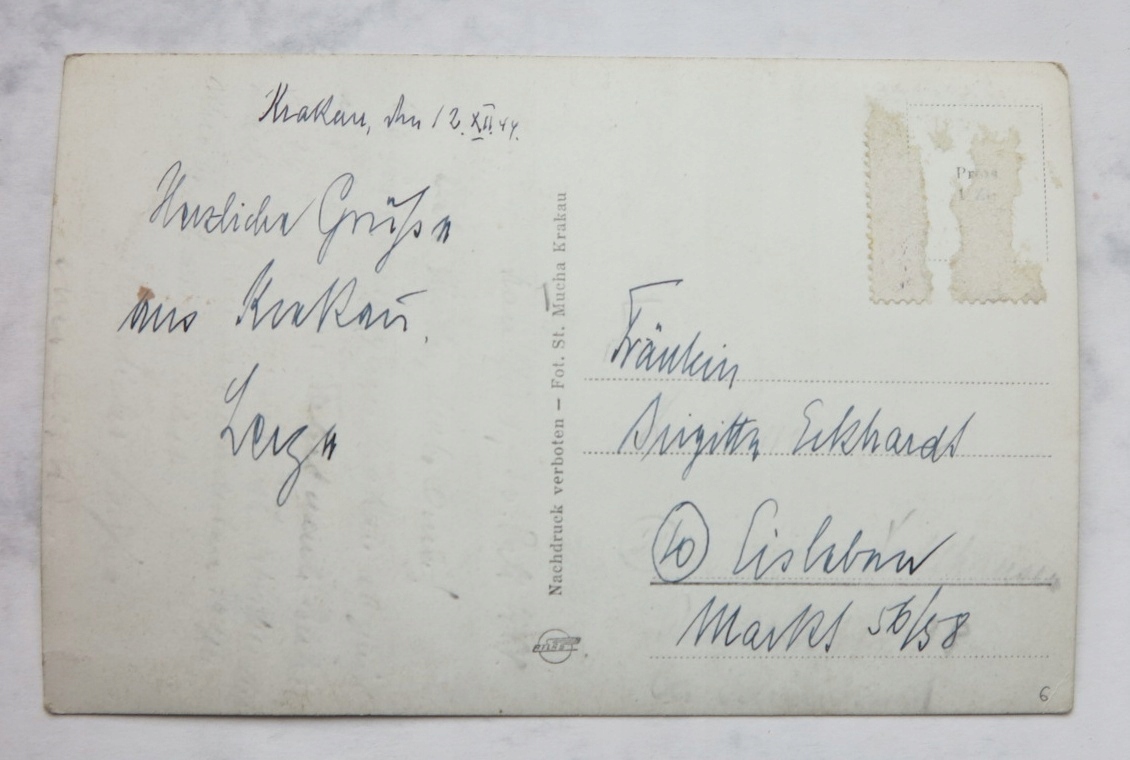 Krakau, den 12. XII. 44.
Herzliche Grüße
aus Krakau.
Nachdruck verboten – Fot. St. Mucha Krakau
Fräulein
Brigitte Eckhardt
10 Eisleben
Markt 56/58
6